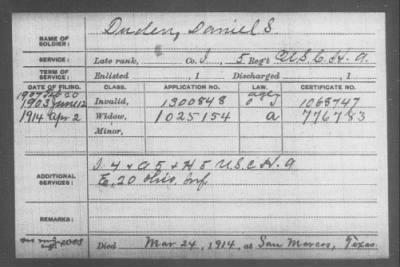 NAME OF SOLDIER: Duden, Daniel S.
SERVICE: Late rank, Co. I, 5 Reg't U.S.C.H.A.
TERM OF SERVICE: Enlisted , 1 Discharged , 1
DATE OF FILING. CLASS. APPLICATION NO. LAW. CERTIFICATE NO.
1903 June 12 Invalid, 1300848 1068747
1914 Apr 2 Widow, 1025154 a 776783
Minor,
ADDITIONAL SERVICES: I 4 & G 5 & H 5 U.S.C.H.A
E, 20 Ohio Inf
REMARKS:
Died Mar 24, 1914, at San Marcos, Texas.